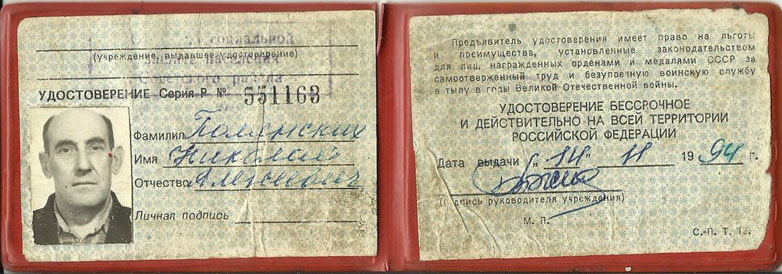 социальной
защиты населения
района
(учреждение, выдавшее удостоверение)
УДОСТОВЕРЕНИЕ Серия Р № 551163
Фамилия
Имя Николай
Отчество
Личная подпись
Предъявитель удостоверения имеет право на льготы
и преимущества, установленные законодательством
для лиц, награжденных орденами и медалями СССР за
самоотверженный труд и безупречную воинскую службу
в тылу в годы Великой Отечественной войны.
УДОСТОВЕРЕНИЕ БЕССРОЧНОЕ
И ДЕЙСТВИТЕЛЬНО НА ВСЕЙ ТЕРРИТОРИИ
РОССИЙСКОЙ ФЕДЕРАЦИИ
Дата выдачи „14" 11 1994 г.
(подпись руководителя учреждения)
М. П.
С.-П. Т. 12.